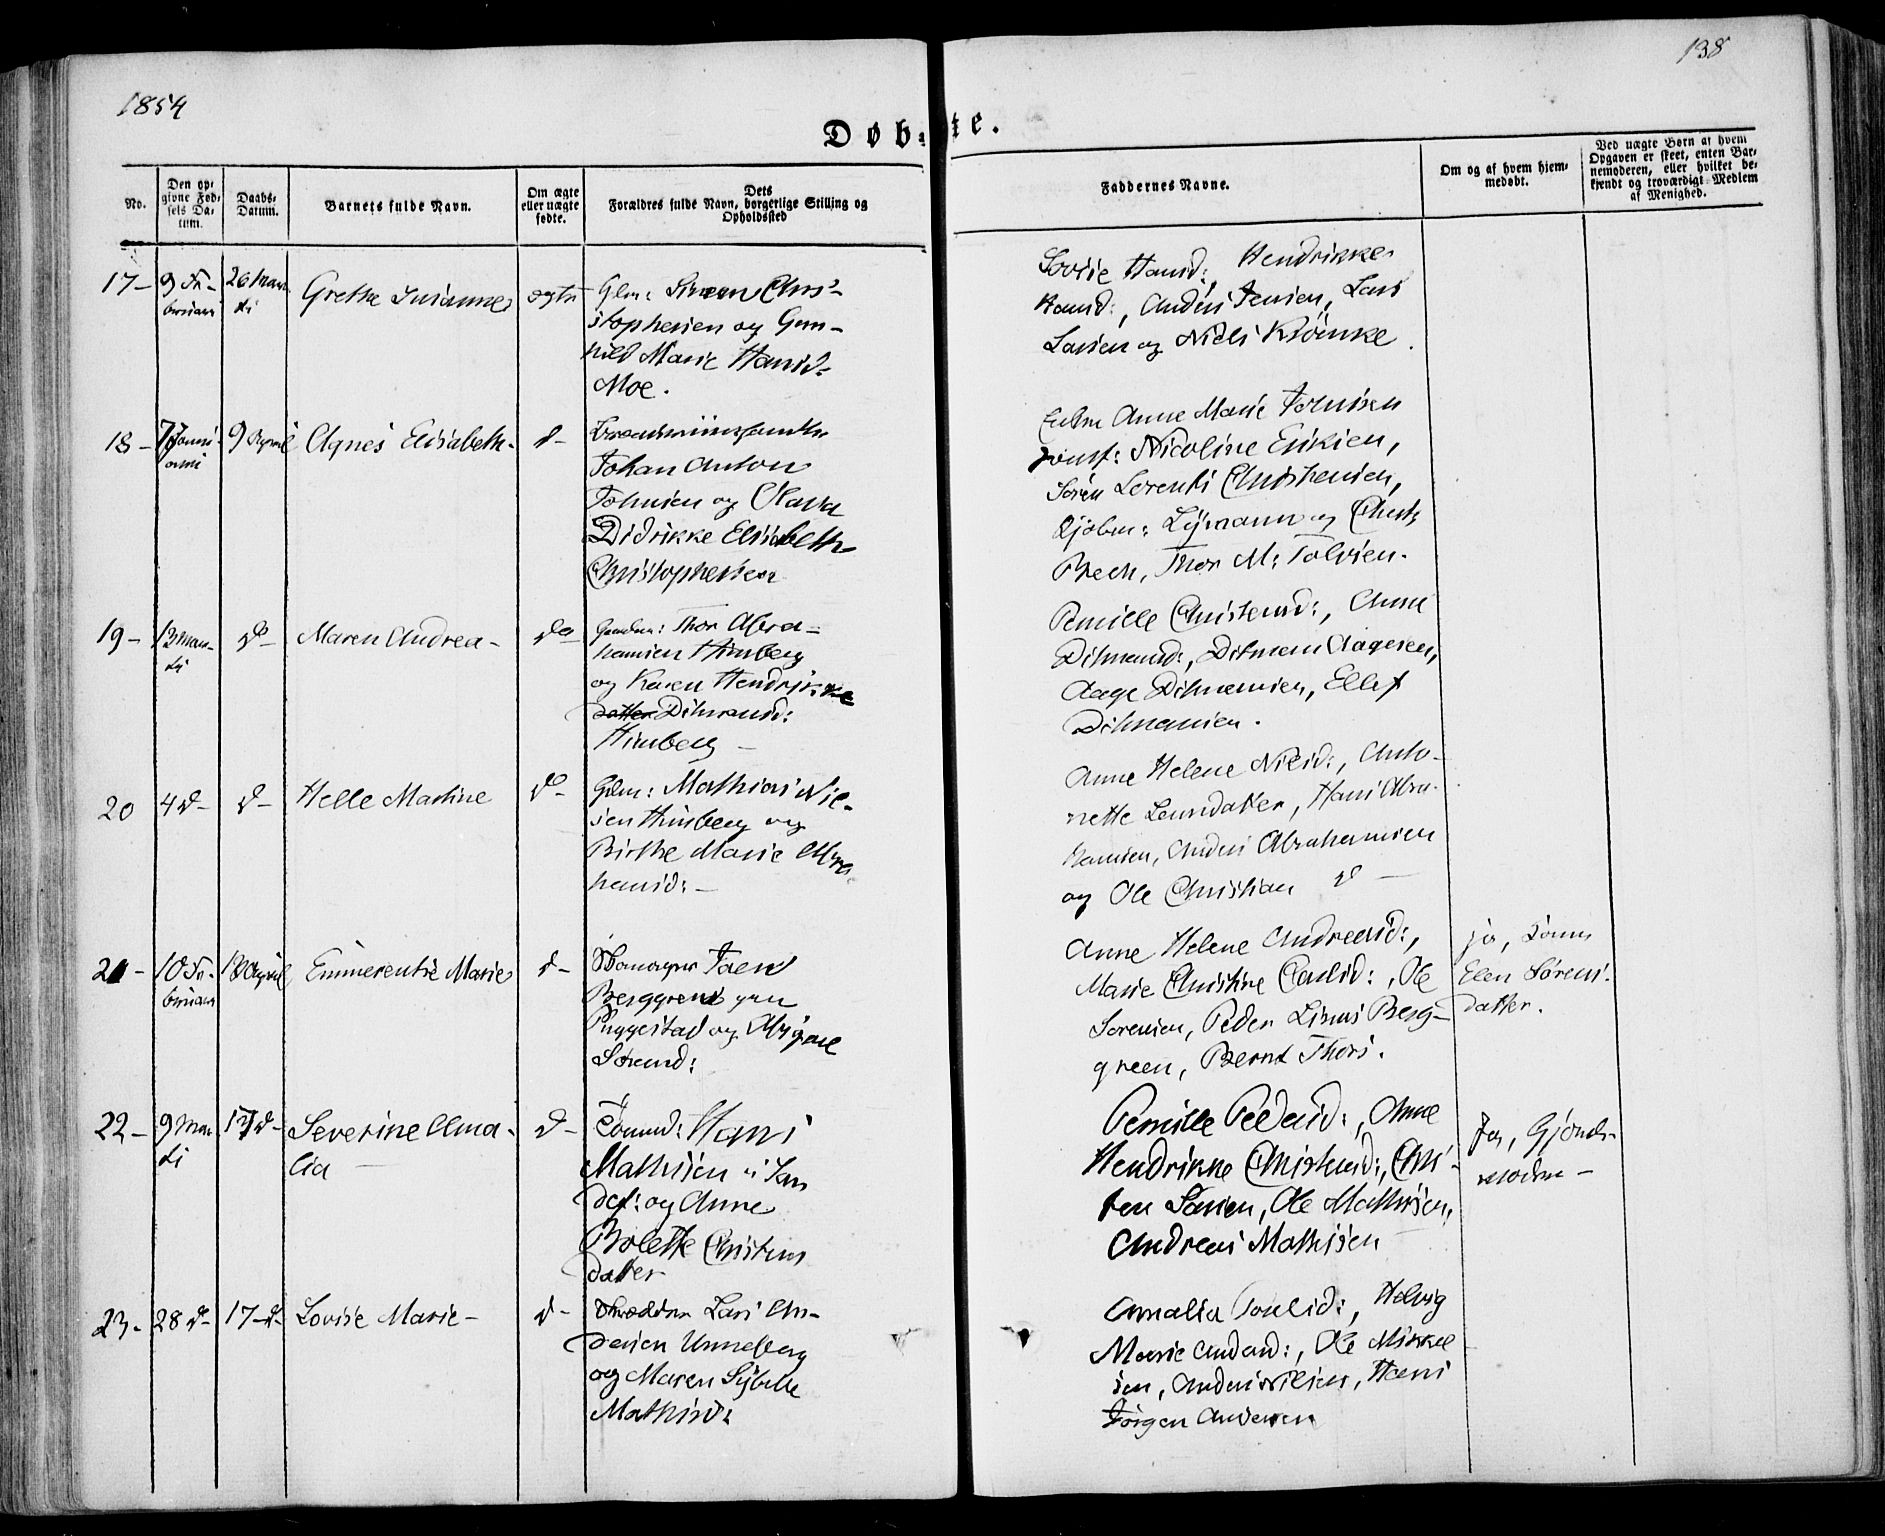 1854
138
Døb-te.
No.
Den op-
givne Fød-
sels Da-
tum.
Daabs-
Datum.
Barnets fulde Navn.
Om ægte
eller uægte
fødte.
Dets
Forældres fulde Navn, borgerlige Stilling og
Opholdssted
Faddernes Navne.
Om og af hvem hjem-
medøbt.
Ved uægte Børn af hvem
Opgaven er skeet, enten Bar-
nemoderen, eller hvilket be-
kjendt og troværdigt Medlem
af Menighed.
17-
9 Fe-
bruari
26 Mar-
ti
Grethe Susanne
ægte
Glm: Simen Chri-
stophersen og Gun-
hild Marie Hansd-
Moe.
Lovise Hansd:, Hendrikke
Hansd:, Anders Jensen, Lars
Larsen og Niels
18-
7 Janu-
arii
9 April
Agnes Elisabeth-
d-
Johan Anton
Johnsen og Olava
Didrikke Elisabeth
Christophersen
Anne Marie Johnsen
Jomf: Nicoline Eriksen,
Søren Lorents Christensen,
Kjøbm: og
Bech, Thor M: Tolvsen.
19-
13 Mar-
ti
do-
Maren Andrea-
do
Gaardm: Thor Abra-
hamsen Himberg
og Karen Hendrikke
datter Ditmansd:
Himberg -
Pernille Christensd:, Anne
Ditmansd:, Ditman Aagesen,
Aage Ditmansen, Ellef
Ditmansen.
20
4 d-
d-
Helle Martine
do-
Glm: Mathias Nil-
sen Himberg og
Birthe Marie Abra
hamsd: -
Anne Helene Nilsd:, Anto-
nette Larsdatter, Hans Abra-
hamsen, Anders Abrahamsen
og Ole Christian d -
21-
10 Fe-
bruari
13 April
Emmerentse Marie
d-
Berggren
Puggestad og Abigael
Sørensd:
Anne Helene Andreasd:,
Marie Christine Paulsd:, Ole
Sørensen, Peder Linus Berg-
green, Bernt Thors.
ja,
Elen Sørens-
datter.
22-
9 Mar
ti
17 d-
Severine Ama-
lia -
d-
Tømmd: Hans
Mathisen i San
def: og Anne
Bolette Christens
datter
Pernille Pedersd:, Anne
Hendrikke Christensd:, Chri-
sten Larsen, Ole Mathisen,
Andreas Mathisen
Ja, Gjords-
moder -
23-
28 d-
17-d-
Lovise Marie-
d-
Skrædder Lars An-
dersen Unneberg
og Maren Sybille
Mathisd:
Amalia Paulsd:, Helvig
Marie Andersd:, Ole Mikkel
sen, Anders Nilsen, Hans
Jørgen Andersen